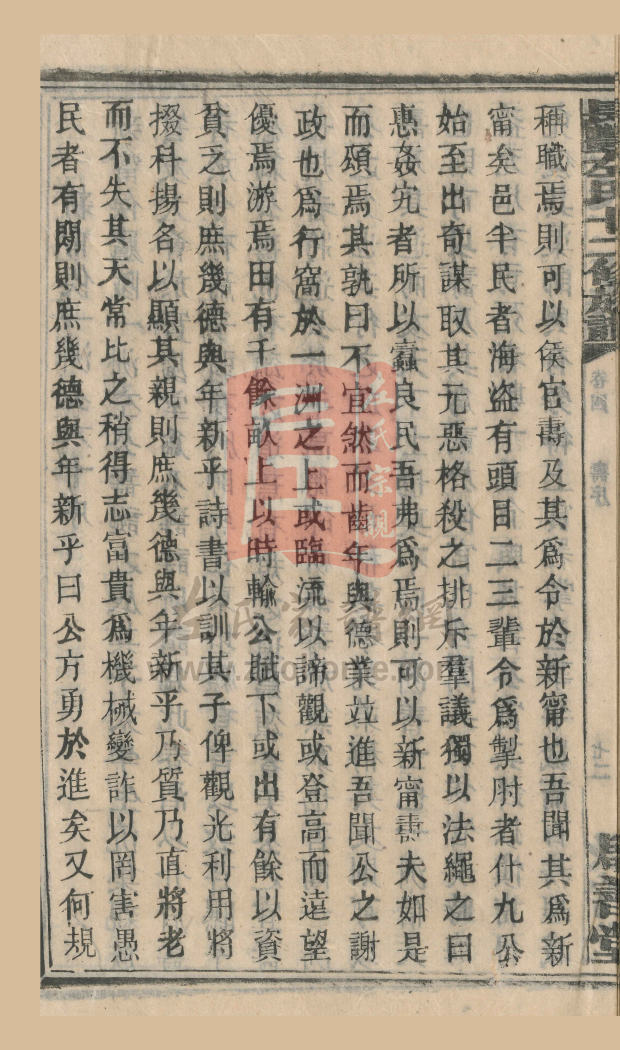 稱職焉則可以侯官壽及其爲令於新甯也吾聞其爲新
甯矣邑半民者海盜有頭目二三輩令爲掣肘者什九公
始至出奇謀取其元惡格殺之排斥羣議獨以法繩之曰
惠姦宄者所以蠹良民吾弗爲焉則可以新甯壽夫如是
而頌焉其孰曰不宜然而齒年與德業竝進吾聞公之謝
政也爲行窩於一洲之上或臨流以諦觀或登高而遠望
優焉游焉田有千餘畝上以時輸公賦下或出有餘以資
貧乏則庶幾德與年新乎詩書以訓其子俾觀光利用將
掇科揚名以顯其親則庶幾德與年新乎乃質乃直將老
而不失其天常比之稍得志富貴爲機械變詐以罔害愚
民者有閒則庶幾德與年新乎曰公方勇於進矣又何規
卷四
壽序
七二